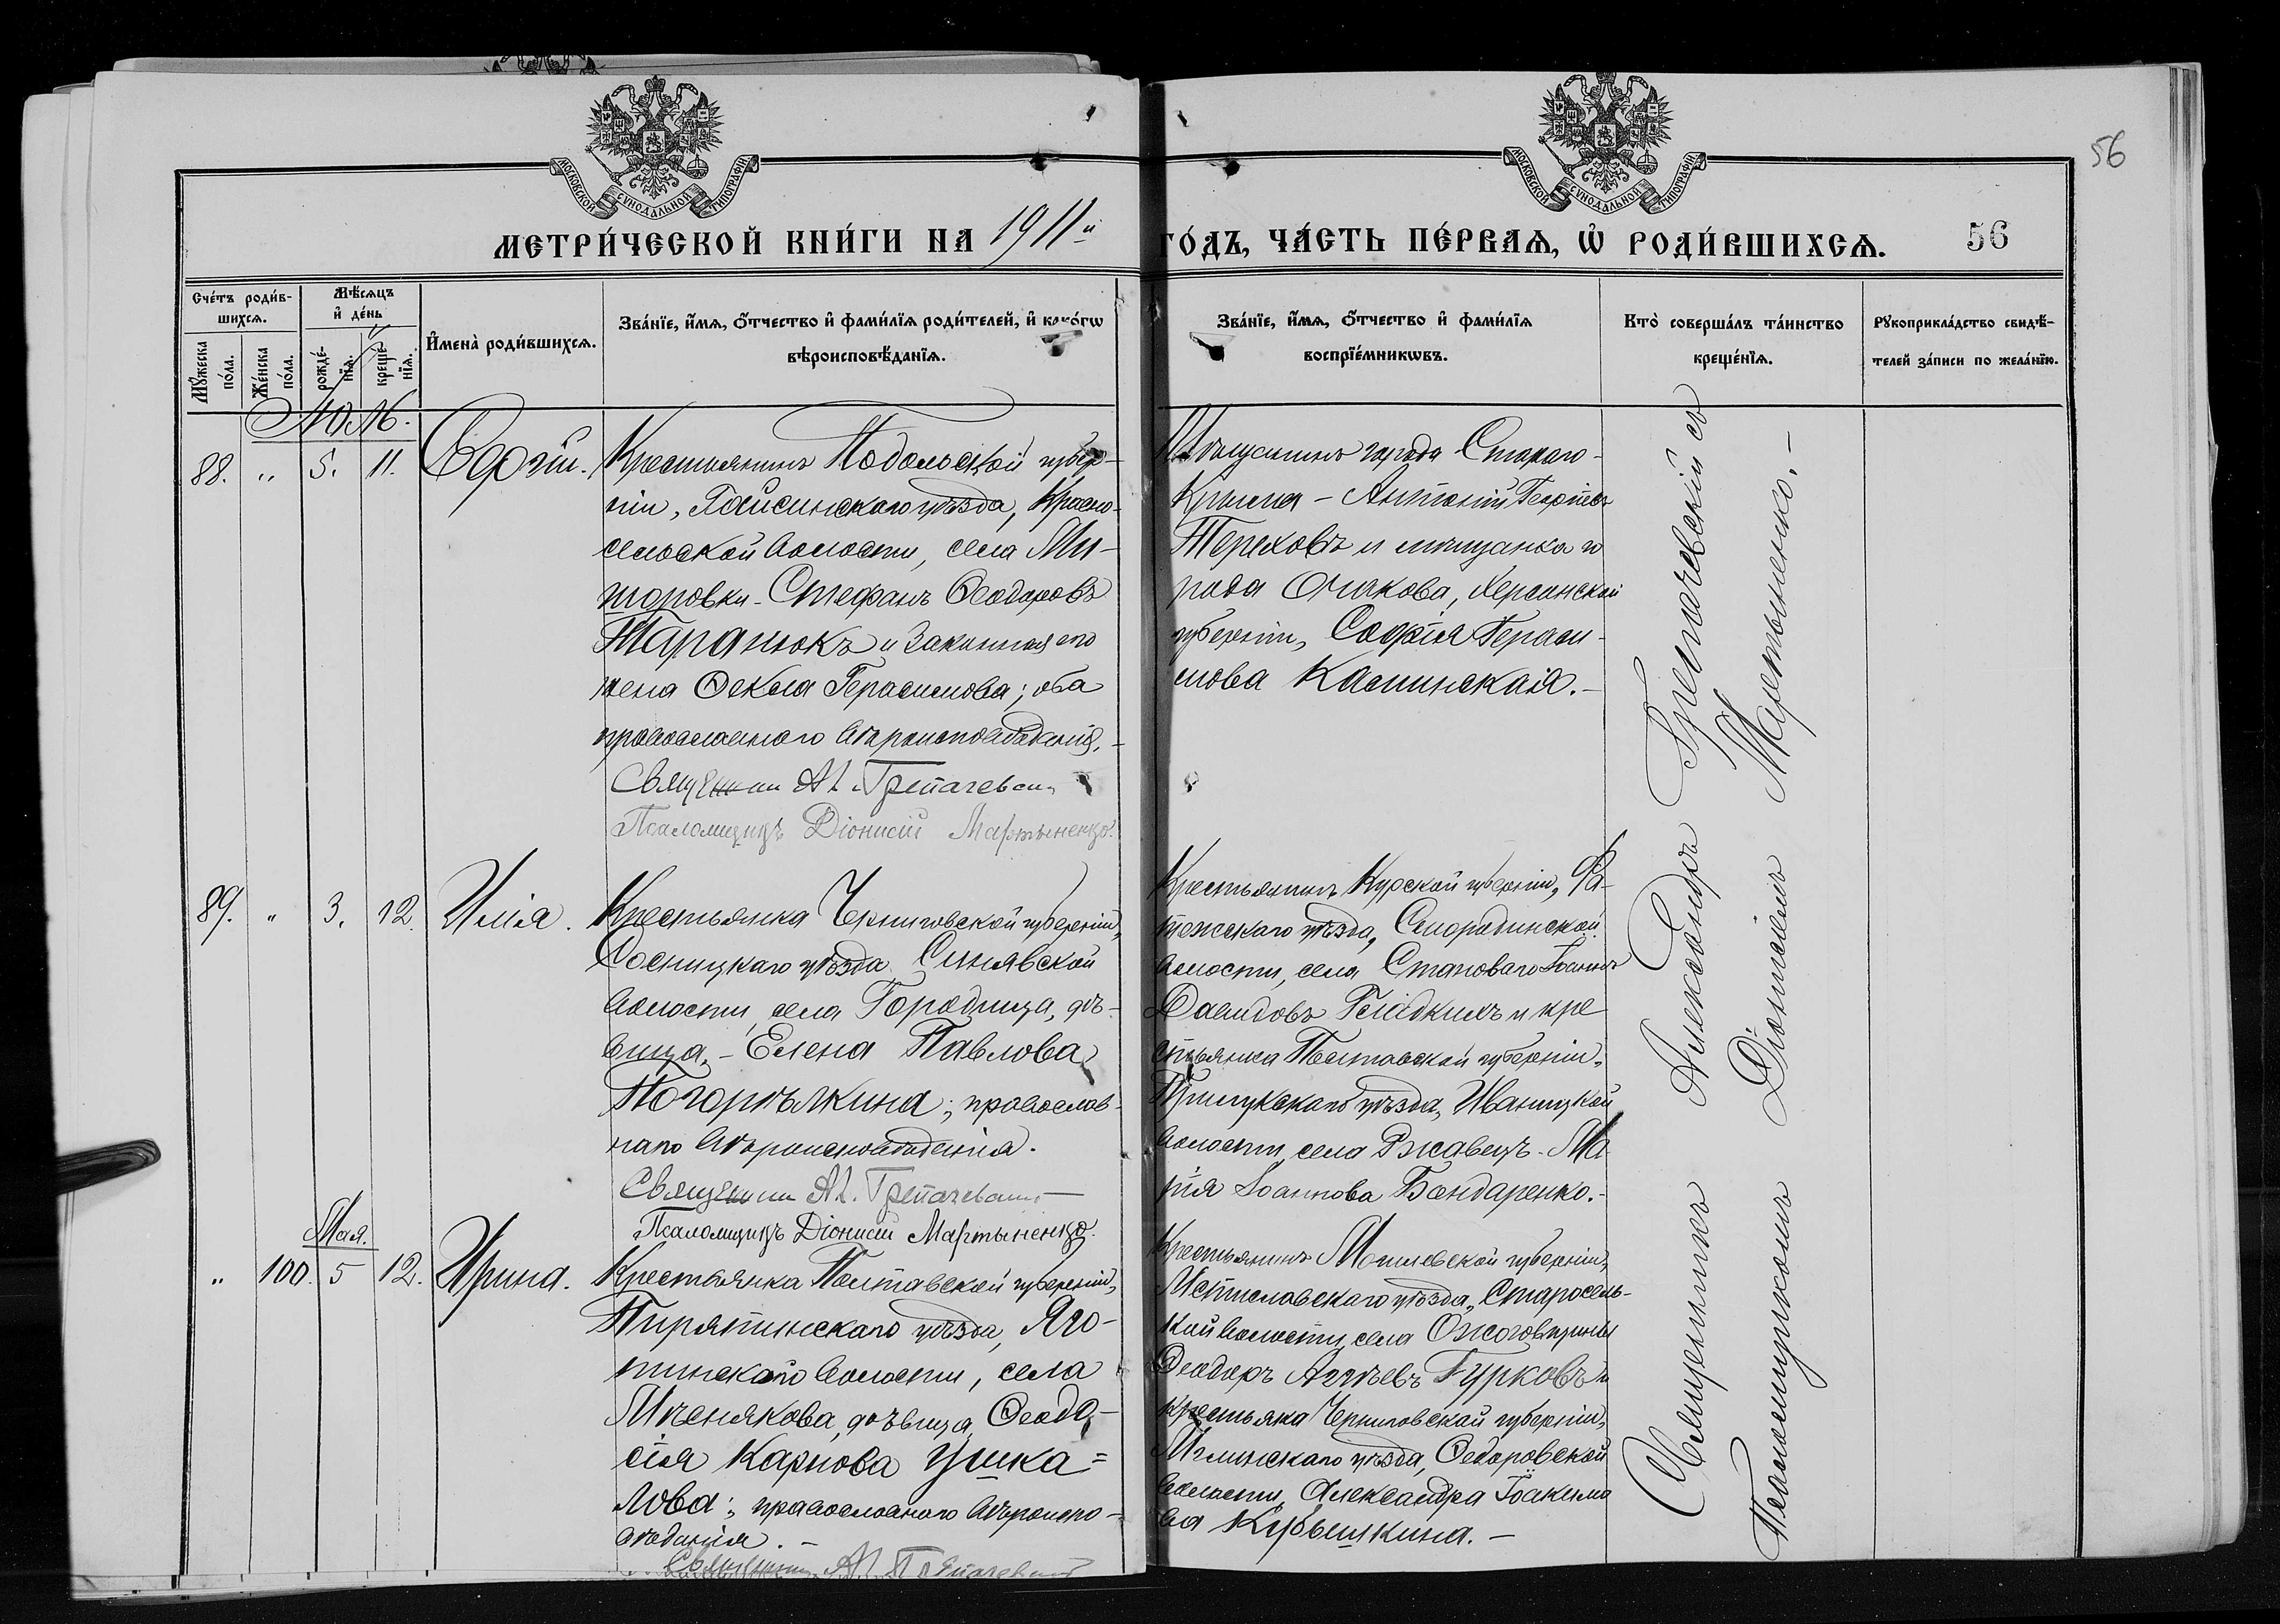 56
МОСКОВСКОЙ СѴНОДАЛЬНОЙ ТИПОГРАФІИ
МОСКОВСКОЙ СѴНОДАЛЬНОЙ ТИПОГРАФІИ
МЕТРИ́ЧЕСКОЙ КНИ́ГИ НА 1911й
ГО́ДЪ, ЧА́СТЬ ПЕ́РВАѦ, Ѡ҆ РОДИ́ВШИХСѦ. 56
Сче́тъ роди́в-
шихсѧ.
Мꙋ́жеска по́ла.
Же́нска по́ла.
Мѣ́сѧцъ
и҆ де́нь
рожде́-
нїѧ.
креще́-
нїѧ.
И҆мена̀ роди́вшихсѧ.
Зва́нїе, и҆́мѧ, ѻ҆́тчество и҆ фами́лїѧ роди́телей, и҆ како́гѡ
вѣроисповѣ́данїѧ.
Зва́нїе, и҆́мѧ, ѻ҆́тчество и҆ фами́лїѧ
воспрїе́мникѡвъ.
Кто̀ соверша́лъ та́инство
креще́нїѧ.
Рꙋкоприкла́дство свидѣ́-
телей за́писи по жела́нїю.
88. " 5. 11. Сергій.
Крестьянинъ Подольской губер-
ніи, Гайсинскаго уѣзда, Красно-
сельской волости, села Ми-
торовки - Стефанъ Ѳеодоровъ
Таранюкъ и законная его
жена Ѳекла Герасимова; оба
православнаго вѣроисповѣданія.-
Священникъ Ал. Грепачевскій
Псаломщикъ Діонисій Мартыненко.
Мѣщанинъ города Стараго-
Крыма - Антоній Георгіевъ
Тереховъ и мѣщанка го
рода Очакова, Херсонской
губерніи, Софія Гераси-
мова Каминская.-
89. " 3. 12. Илія.
Крестьянка Черниговской губерніи,
Сосницкаго уѣзда, Синявской
волости, села Городища, дѣ-
вица, - Елена Павлова
Погорѣлкина; православ-
наго вѣроисповѣданія.
Священникъ Ал. Грепачевскій
Псаломщикъ Діонисій Мартыненко.
Крестьянинъ Курской губерніи, Фа-
тежскаго уѣзда, Смородинской
волости, села Становаго Іоаннъ
Давидовъ Гладкихъ и кре
стьянка Полтавской губерніи,
Прилукскаго уѣзда, Иваницкой
волости, села Ржавецъ - Ма
рія Іоаннова Бондаренко.-
Мая.
" 100. 5 12. Ирина.
Крестьянка Полтавской губерніи,
Пирятинскаго уѣзда, Яго-
тинской волости, села
Личенякова, дѣвица Ѳеодо-
сія Карпова Ушка=
лова; православнаго вѣроиспо-
вѣданія. -
Священникъ Ал. Грепачевскій
Крестьянинъ Могилевской губерніи,
Мстиславскаго уѣзда, Старосель-
ской волости, села
Ѳеодоръ Аггѣевъ Гурковъ и
крестьянка Черниговской губерніи,
Мглинскаго уѣзда, Ѳедоровской
волости, Александра Іоакимо
ва Кубышкина. -
Священникъ Александръ Грепачевскій съ
Псаломщикомъ Діонисіемъ Мартыненко. -